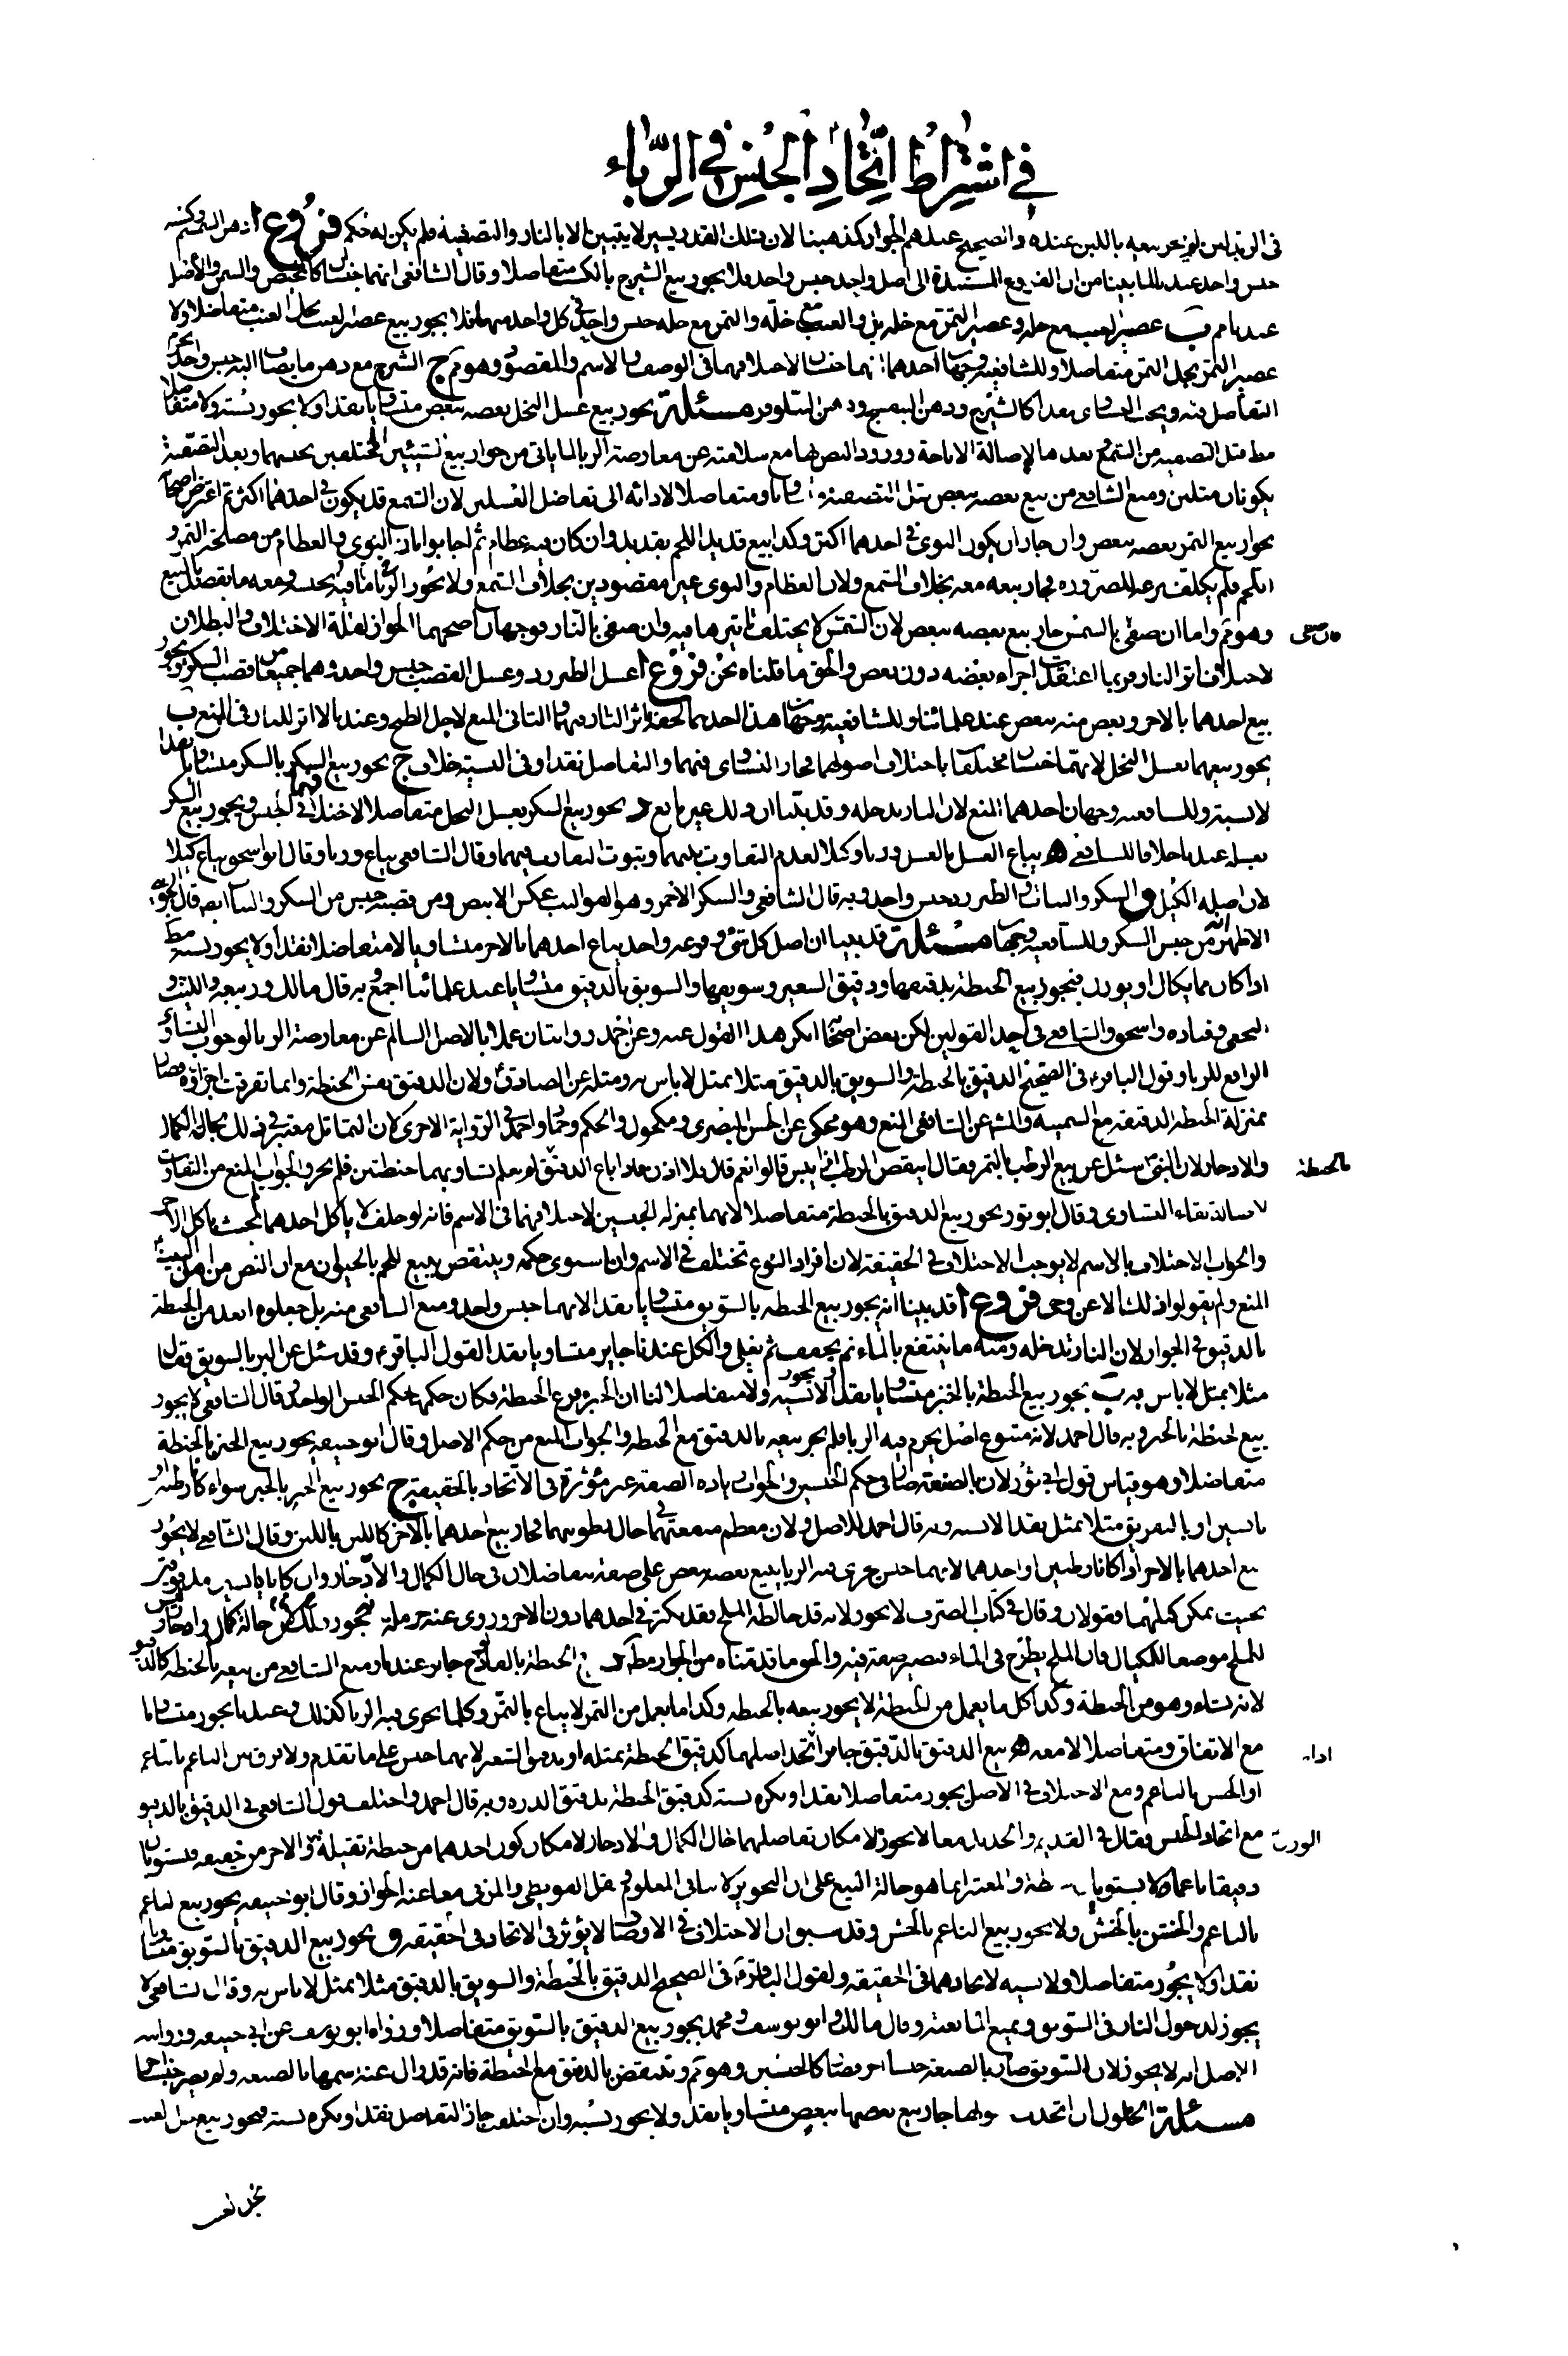 في اشتراط اتحاد الجنس في الرباء
في الزبد لمن لم يجز بيعه باللبن عنده والصحيح عندهم الجواز كمذهبنا لان ذلك القدر يسير لا يتبين الا بالنار والتصفية فلم يكن له حكم فروع ا دهن السمسم وكسبه
جنس واحد عندنا لما بينا من ان الفروع المستندة الى اصل واحد جنس واحد فلا يجوز بيع الشيرج بالكسب متفاضلا وقال الشافعي انهما جنسان كالمخيض والسمن والاصل
عندنا مم ب عصير العنب مع خله وعصير التمر مع خله بل والعنب مع خله والتمر مع خله جنس واحد في كل واحد منهما فلا يجوز بيع عصير العنب بخل العنب متفاضلا ولا
عصير التمر بخل التمر متفاضلا وللشافعية وجهان احدهما انهما جنسان لاختلافهما في الوصف والاسم والمقصود وهو مم ج الشيرج مع دهن ما يضاف اليه جنس واحد يحرم
التفاضل فيه ويجب التساوي نقدا كالشيرج ودهن البنفسج ودهن النيلوفر مسئلة يجوز بيع عسل النحل بعضه ببعض متساويا نقدا ولا يجوز نسية ولا متفاضلا
مط قبل التصفية من الشمع وبعدها لاصالة الاباحة وورود النص بها مع سلامته عن معارضة الربا لما ياتي من جواز بيع شيئين مختلفين بجنسهما وبعد التصفية
يكونان مثلين ومنع الشافعي من بيع بعضه ببعض قبل التصفية متساويا ومتفاضلا لادائه الى تفاضل العسلين لان الشمع قد يكون في احدهما اكثر ثم اعترض اصحابه
بجواز بيع التمر بعضه ببعض وان جاز ان يكون النوى في احدهما اكثر وكذا بيع قديد اللحم بقديد وان كان فيه عظام ثم اجابوا بان النوى والعظام من مصلحة التمر و
اللحم فلم يكلف نزعه للضرورة فجاز بيعه معه بخلاف الشمع ولان العظام والنوى غير مقصودين بخلاف الشمع ولا يجوز الربا ما فيه بجنسه ومعه ما يقصد بالبيع
وهو مم واما ان صفي بالشمس جاز بيع بعضه ببعض لان الشمس لا يختلف تاثيرها فيه وان صفي بالنار فوجهان اصحهما الجواز لقلة الاختلاف والبطلان
لاختلاف اثر النار فربما اعتقدت اجزاء بعضه دون بعض والحق ما قلناه نحن فروع ا عسل الطبرزد وعسل القصب جنس واحد وهما جميعا من قصب السكر فيجوز
بيع احدهما بالاخر وبعض منه ببعض عند علمائنا وللشافعية وجهان هذا احدهما لخفة اثر النار فيهما والثاني المنع لاجل الطبخ وعندنا لا اثر للنار في المنع ب
يجوز بيعهما بعسل النحل لانهما جنسان مختلفان باختلاف اصولهما فجاز التساوي فيهما والتفاضل نقدا وفي النسية خلاف ج يجوز بيع السكر بالسكر متساويا نقدا
لا نسية وللشافعية وجهان احدهما المنع لان النار تدخله وقد بينا ان ذلك غير مانع د يجوز بيع السكر بعسل النحل متفاضلا لاختلافهما في الجنس ويجوز بيع السكر
بعسله عندنا خلافا للشافعي ه يباع العسل بالعسل وزنا وكيلا لعدم التفاوت بينهما وثبوت التعارف فيهما وقال الشافعي يباع وزنا وقال ابو اسحق يباع كيلا
لان اصله الكيل و السكر والنبات والطبرزد جنس واحد وبه قال الشافعي والسكر الاحمر وهو القوالب عكس الابيض ومن قصبه جنس من السكر والنبات ايضا قال الجويني
الاظهر انه من جنس السكر وللشافعية وجهان مسئلة قد بينا ان اصل كل شئ وفرعه واحد يباع احدهما بالاخر متساويا لا متفاضلا نقدا ولا يجوز نسية مط
اذا كان مما يكال او يوزن فيجوز بيع الحنطة بدقيقها ودقيق الشعير وسويقها والسويق بالدقيق متساويا عند علمائنا اجمع وبه قال مالك وربيعة والليث و
النخعي وقتاده واسحق والشافعي في احد القولين لكن بعض اصحابه انكر هذا القول عنه وعن احمد روايتان عملا بالاصل السالم عن معارضة الربا لوجوب التساوي
الرافع للربا وقول الباقرء في الصحيح الدقيق بالحنطة والسويق بالدقيق مثلا بمثل لا باس به ومثله عن الصادقء ولان الدقيق نفس الحنطة وانما تفرقت اجزاؤه فصار
بمنزلة الحنطة الدقيقة مع السمينة والمشهور عن الشافعي المنع وهو محكي عن الحسن البصري ومكحول والحكم وحماد واحمد في الرواية الاخرى لان التماثل معتبر في ذلك بحالة الكمال
والادخار لان النبي سئل عن بيع الرطب بالتمر فقال اينقص الرطب اذا يبس قالوا نعم قال فلا اذن فاذا باع الدقيق لم يعلم تساويهما حنطتين فلم يجز والجواب المنع من التفاوت
لاصالة بقاء التساوي وقال ابو ثور يجوز بيع الدقيق بالحنطة متفاضلا لانهما بمنزلة الجنسين لاختلافهما في الاسم فانه لو حلف لا ياكل احدهما لم يحنث باكل الاخر
والجواب الاختلاف بالاسم لا يوجب الاختلاف في الحقيقة لان افراد النوع تختلف في الاسم وان استوى حكمه وينتقض ببيع اللحم بالحيوان مع ان النص من اهل البيت
المنع ولم يقولوا ذلك الا عن وحي فروع ا قد بينا انه يجوز بيع الحنطة بالسويق متساويا نقدا لانهما جنس واحد ومنع الشافعي منه بل جعلوه ابعد من الحنطة
بالدقيق في الجواز لان النار تدخله ومنه ما ينتفع بالماء ثم يجفف ثم يقلى والكل عندنا جايز متساويا نقدا لقول الباقرء وقد سئل عن البر بالسويق فقال
مثلا بمثل لا باس به ب يجوز بيع الحنطة بالخبز متساويا نقدا ولا يجوز نسية ولا متفاضلا لنا ان الخبز فرع الحنطة فكان حكمهما حكم الجنس الواحد وقال الشافعي لا يجوز
بيع الحنطة بالخبز وبه قال احمد لانه متنوع اصل يحرم فيه الربا فلم يجز بيعه بالدقيق مع الحنطة والجواب المنع من حكم الاصل وقال ابو حنيفه يجوز بيع الخبز بالحنطة
متفاضلا وهو قياس قول ابي ثور لان بالصنعة صارا في حكم الجنسين والجواب زيادة الصنعة غير مؤثرة في الاتحاد بالحقيقة ج يجوز بيع الخبز بالخبز سواء كانا رطبين او
يابسين او بالتفريق مثلا بمثل نقدا لا نسية وبه قال احمد للاصل ولان معظم منفعتهما في حال رطوبتهما فجاز بيع احدهما بالاخر كاللبن باللبن وقال الشافعي لا يجوز
بيع احدهما بالاخر اذا كانا رطبين او احدهما لانهما جنس يجري فيه الربا بيع بعضه ببعض على صفة يتفاضلان في حال الكمال والادخار وان كانا يابسين مدقوقين
بحيث يمكن كيلهما فقولان وقال في كتاب الصرف لا يجوز لانه قد خالطه الملح فقد يكثر في احدهما دون الاخر وروى عنه حرملة فيجوز ذلك لان حالة كمال وادخار وليس
للملح موضعا للكيال فان الملح يطرح في الماء فيصير صفة فيه والحق ما قدمناه من الجواز مط د بيع الحنطة بالفالوذج جايز عندنا ومنع الشافعي من بيعه بالحنطة كالدقيق
لانه نشاء وهو من الحنطة وكذا كل ما يعمل من الحنطة لا يجوز بيعه بالحنطة وكذا ما يعمل من التمر لا يباع بالتمر وكلما يجري فيه الربا كذلك وعندنا يجوز متساويا
مع الاتفاق ومتفاضلا لا معه ه بيع الدقيق بالدقيق جايز ان اتحد اصلهما كدقيق الحنطة بمثله او بدقيق الشعير لانهما جنس على ما تقدم ولا فرق بين الناعم بالناعم
او الخشن بالناعم ومع الاختلاف في الاصل يجوز متفاضلا نقدا ويكره نسية كدقيق الحنطة بدقيق الذرة وبه قال احمد واختلف قول الشافعي في الدقيق بالدقيق
مع اتحاد الجنس فقال في القديم والجديد معا لا يجوز لامكان تفاضلهما حال الكمال والادخار لامكان كون احدهما من حنطة ثقيلة والاخر من خفيفة فيستويان
دقيقا ناعما ولا يستويان حنطة والمعتبر انما هو حالة البيع على ان التجويز لا ينافي المعلوم ونقل البويطي والمزني معا عنه الجواز وقال ابو حنيفه يجوز بيع الناعم
بالناعم والخشن بالخشن ولا يجوز بيع الناعم بالخشن وقد سبق ان الاختلاف في الاوصاف لا يؤثر في الاتحاد في الحقيقة و يجوز بيع الدقيق بالسويق متساويا
نقدا ولا يجوز متفاضلا ولا نسية لاتحادهما في الحقيقة ولقول الباقرء في الصحيح الدقيق بالحنطة والسويق بالدقيق مثلا بمثل لا باس به وقال الشافعي لا
يجوز لدخول النار في السويق ويمنع المانعية وقال مالك وابو يوسف ومحمد يجوز بيع الدقيق بالسويق متفاضلا ورواه ابو يوسف عن ابي حنيفه ورواية
الاصل انه لا يجوز لان السويق صار بالصنعة جنسا اخر فصارا كالجنسين وهو مم وينتقض بالدقيق مع الحنطة فانه قد زال عنه اسمها بالصنعة ولم يصر جنسا اخر
مسئلة الخلول ان اتحدت اصولها جاز بيع بعضها ببعض متساويا نقدا ولا يجوز نسية وان اختلف جاز التفاضل نقدا ويكره نسية فيجوز بيع خل العنب
بخل العنب